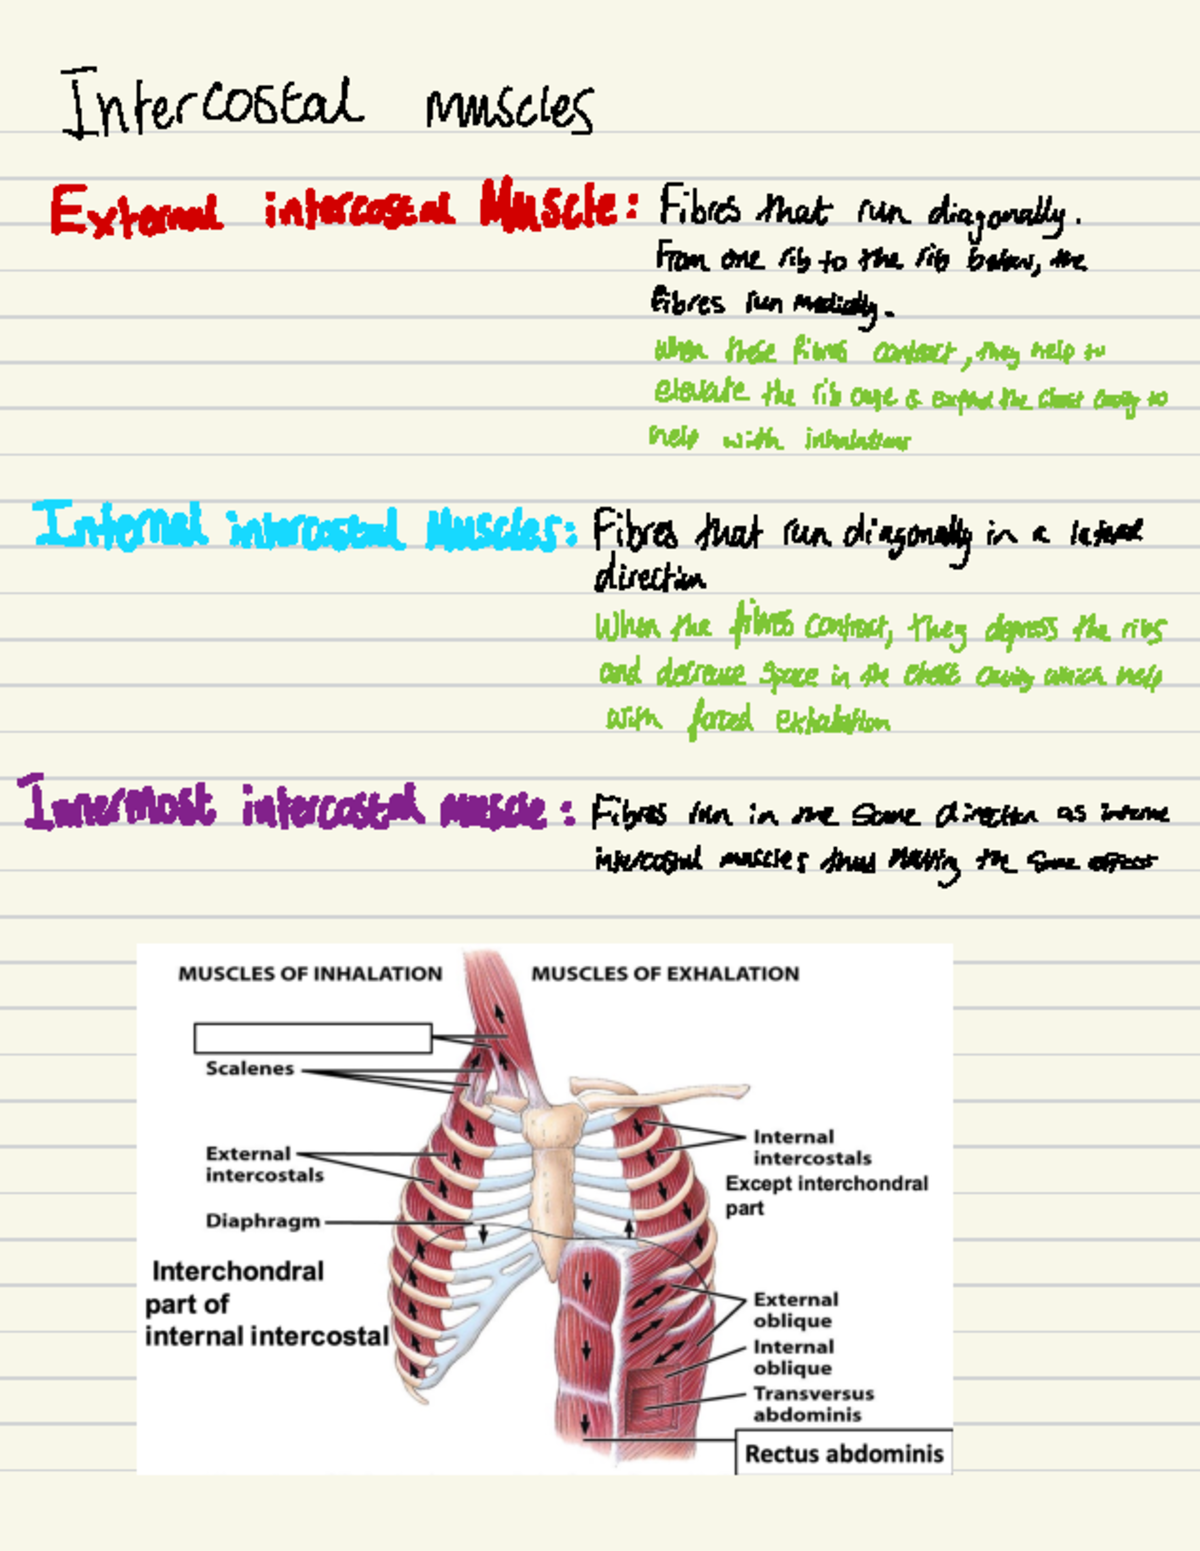 Intercostal muscles
External intercostal Muscle: Fibres that run diagonally.
From one rib to the rib below, the
fibres run medially.
When these fibres contract, they help to
elevate the rib cage & expand the chest cavity to
help with inhalations
Internal intercostal Muscles: Fibres that run diagonally in a lateral
direction
When the fibres contract, they depress the ribs
and decrease space in the chest cavity which help
with forced exhalation
Innermost intercostal muscle: Fibres run in the same direction as
intercostal muscles thus having the same effect
MUSCLES OF INHALATION
MUSCLES OF EXHALATION
Scalenes
External
intercostals
Diaphragm
Interchondral
part of
internal intercostal
Internal
intercostals
Except interchondral
part
External
oblique
Internal
oblique
Transversus
abdominis
Rectus abdominis